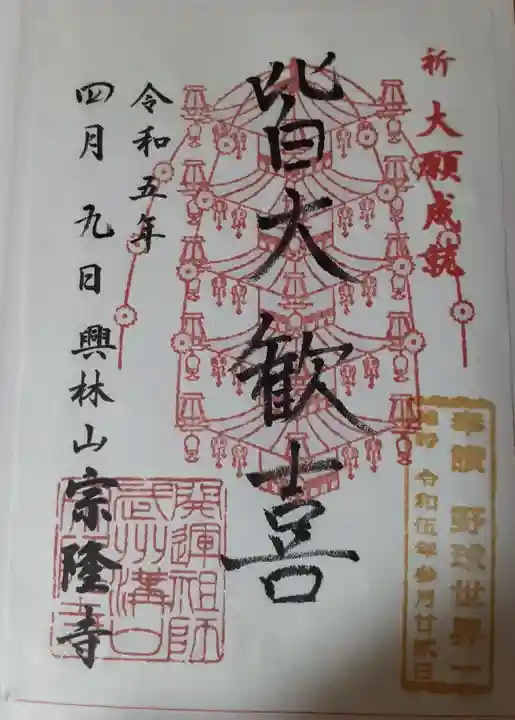 祈 大願成就
奉讃 野球世界一
令和伍年参月廿弐日
皆大歓喜
令和五年
四月 九日 興林山 宗隆寺
開運祖師
武州溝口